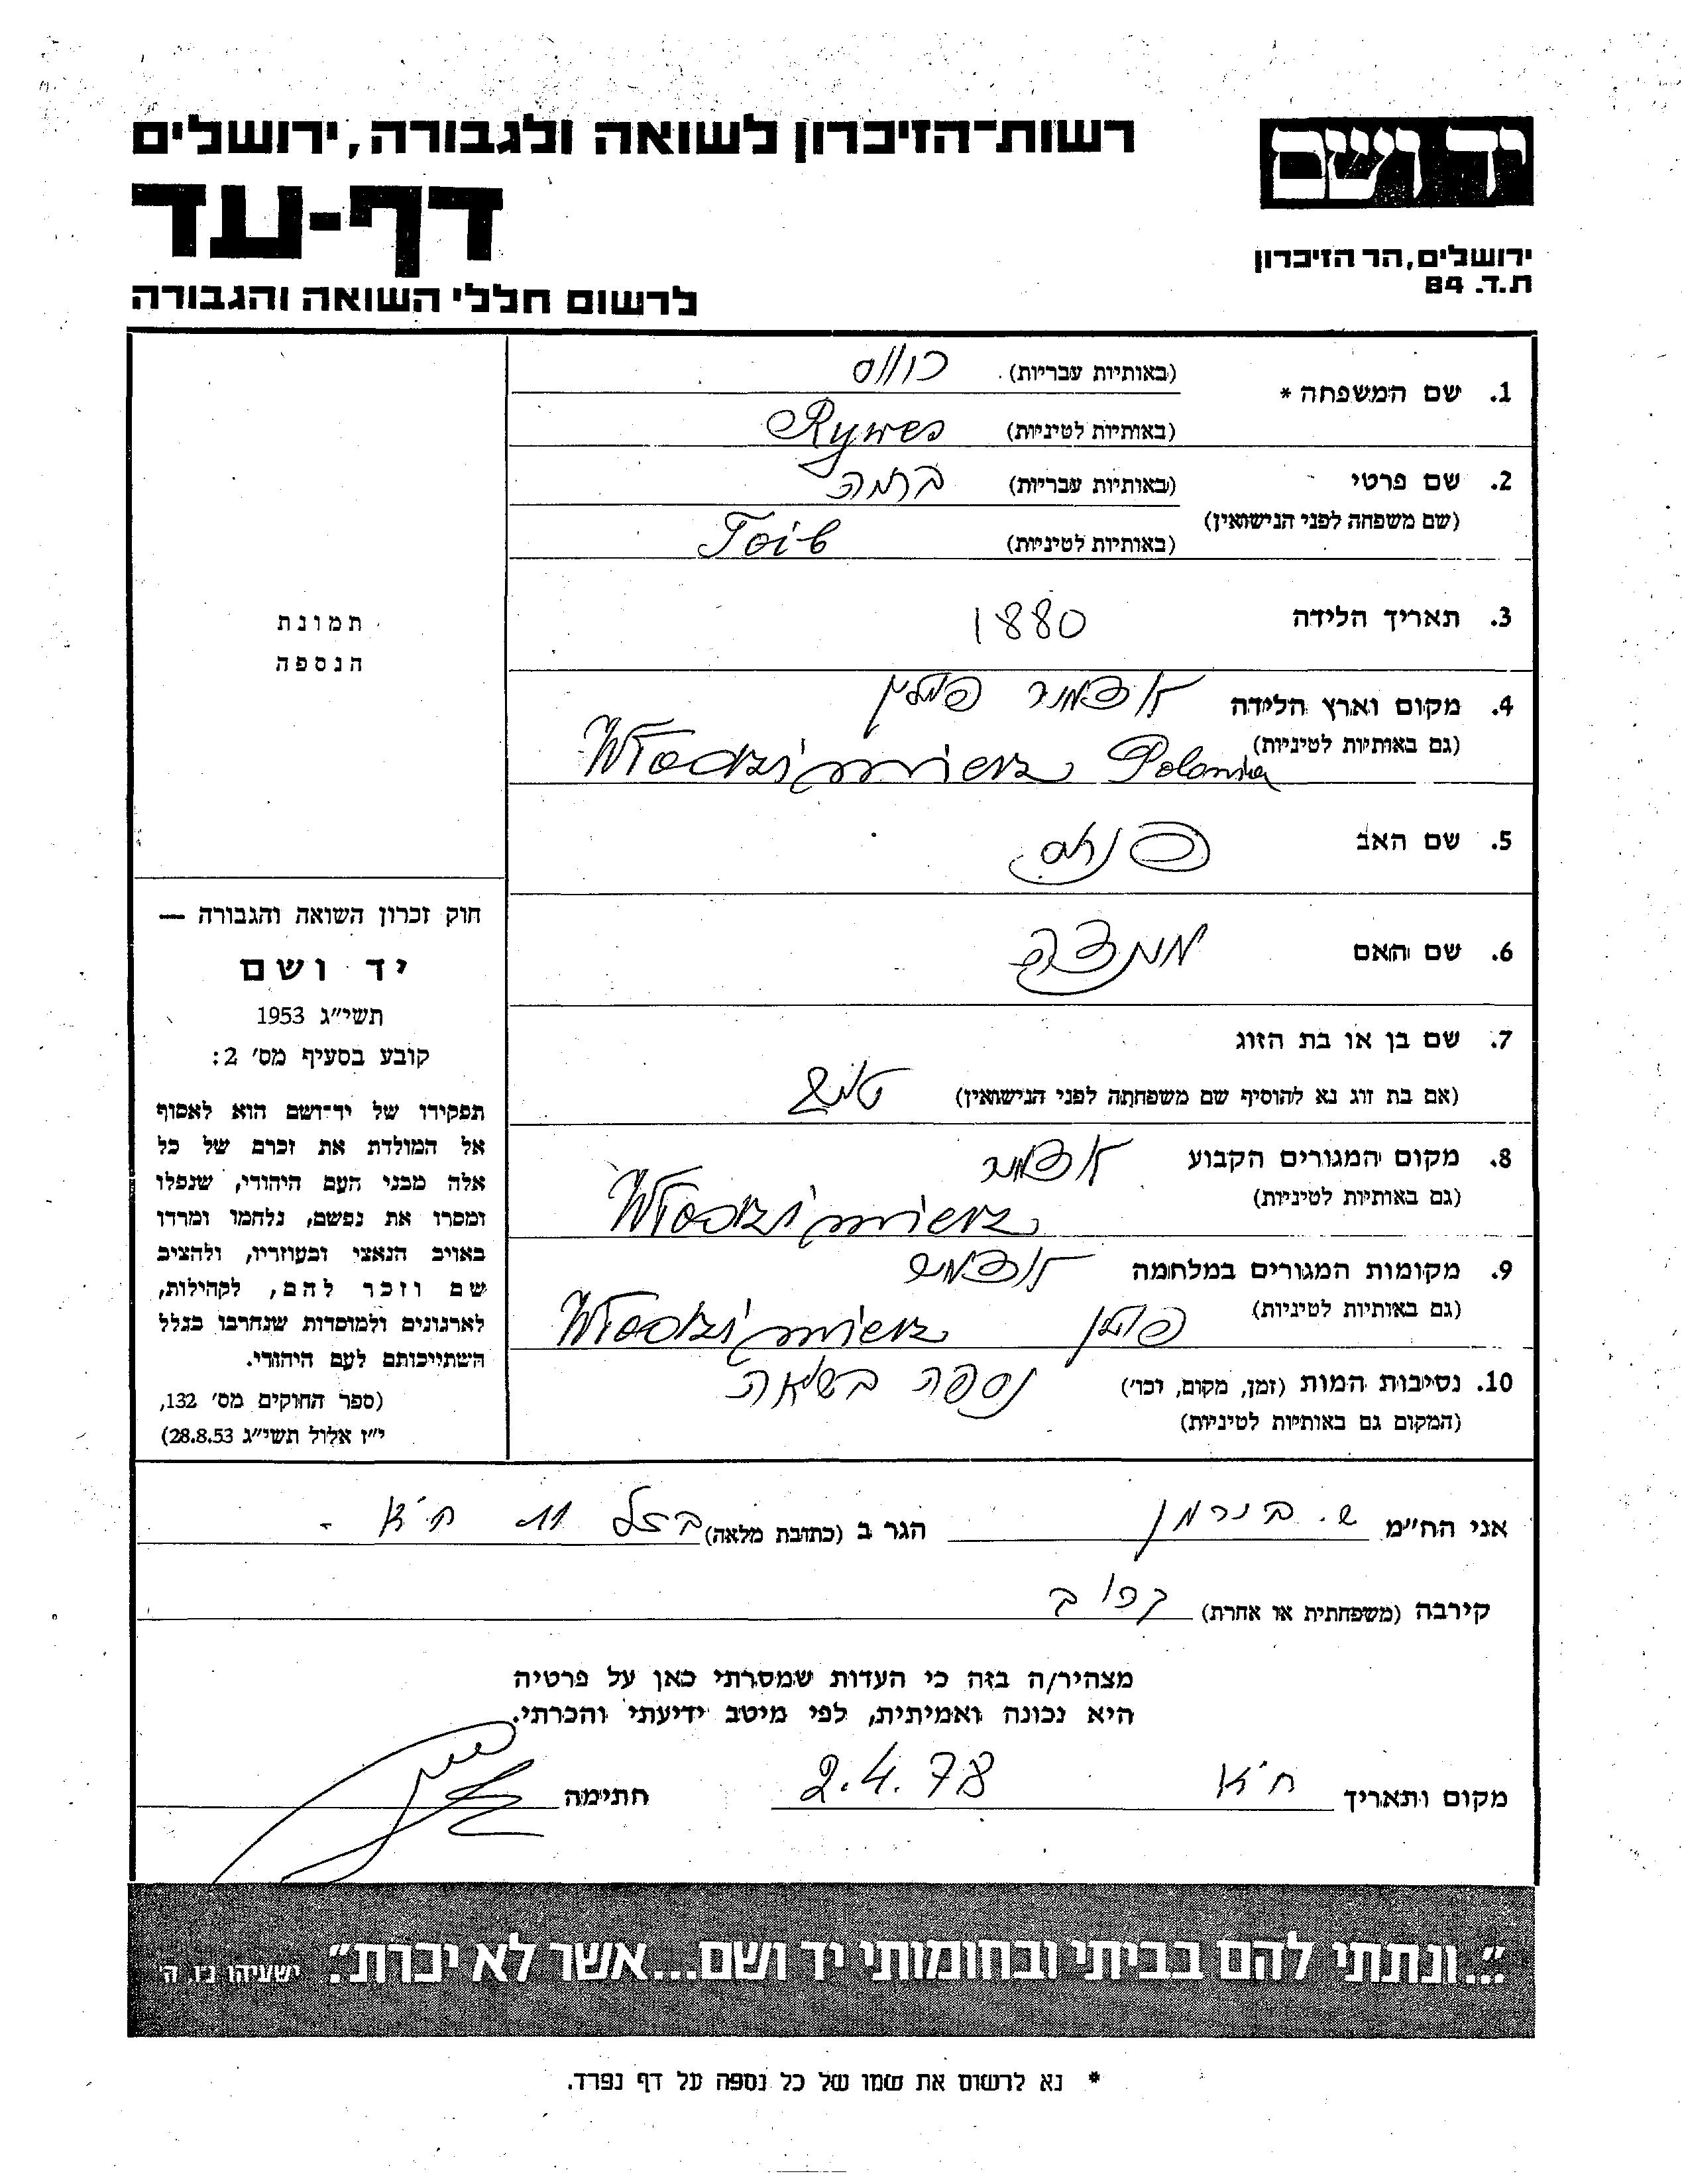 רשות־הזיכרון לשואה ולגבורה, ירושלים
יד ושם
דף-עד
ירושלים, הר הזיכרון
ת.ד. 84
לרשום חללי השואה והגבורה
1. שם המשפחה * (באותיות עבריות)
(באותיות לטיניות) Rywes
2. שם פרטי (באותיות עבריות)
(שם משפחה לפני הנישואין) (באותיות לטיניות) Toib
3. תאריך הלידה 1880
4. מקום וארץ הלידה פולין
(גם באותיות לטיניות) Włodzimierz Polanka
5. שם האב
6. שם האם
7. שם בן או בת הזוג
(אם בת זוג נא להוסיף שם משפחתה לפני הנישואין)
8. מקום המגורים הקבוע
(גם באותיות לטיניות) Włodzimierz
9. מקומות המגורים במלחמה
(גם באותיות לטיניות) פולין Włodzimierz
10. נסיבות המות (זמן, מקום, וכו') נספה בשואה
(המקום גם באותיות לטיניות)
תמונת
הנספה
חוק זכרון השואה והגבורה —
יד ושם
תשי"ג 1953
קובע בסעיף מס' 2:
תפקידו של יד־ושם הוא לאסוף
אל המולדת את זכרם של כל
אלה מבני העם היהודי, שנפלו
ומסרו את נפשם, נלחמו ומרדו
באויב הנאצי ובעוזריו, ולהציב
שם וזכר להם, לקהילות,
לארגונים ולמוסדות שנחרבו בגלל
השתייכותם לעם היהודי.
(ספר החוקים מס' 132,
י"ז אלול תשי"ג 28.8.53)
אני הח"מ ש. בירמן הגר ב (כתובת מלאה) 11 ת"א -
קירבה (משפחתית או אחרת) קרוב
מצהיר/ה בזה כי העדות שמסרתי כאן על פרטיה
היא נכונה ואמיתית, לפי מיטב ידיעתי והכרתי.
מקום ותאריך ת"א 2.4.78 חתימה
"...ונתתי להם בביתי ובחומותי יד ושם...אשר לא יכרת". ישעיהו נו, ה'
* נא לרשום את שמו של כל נספה על דף נפרד.